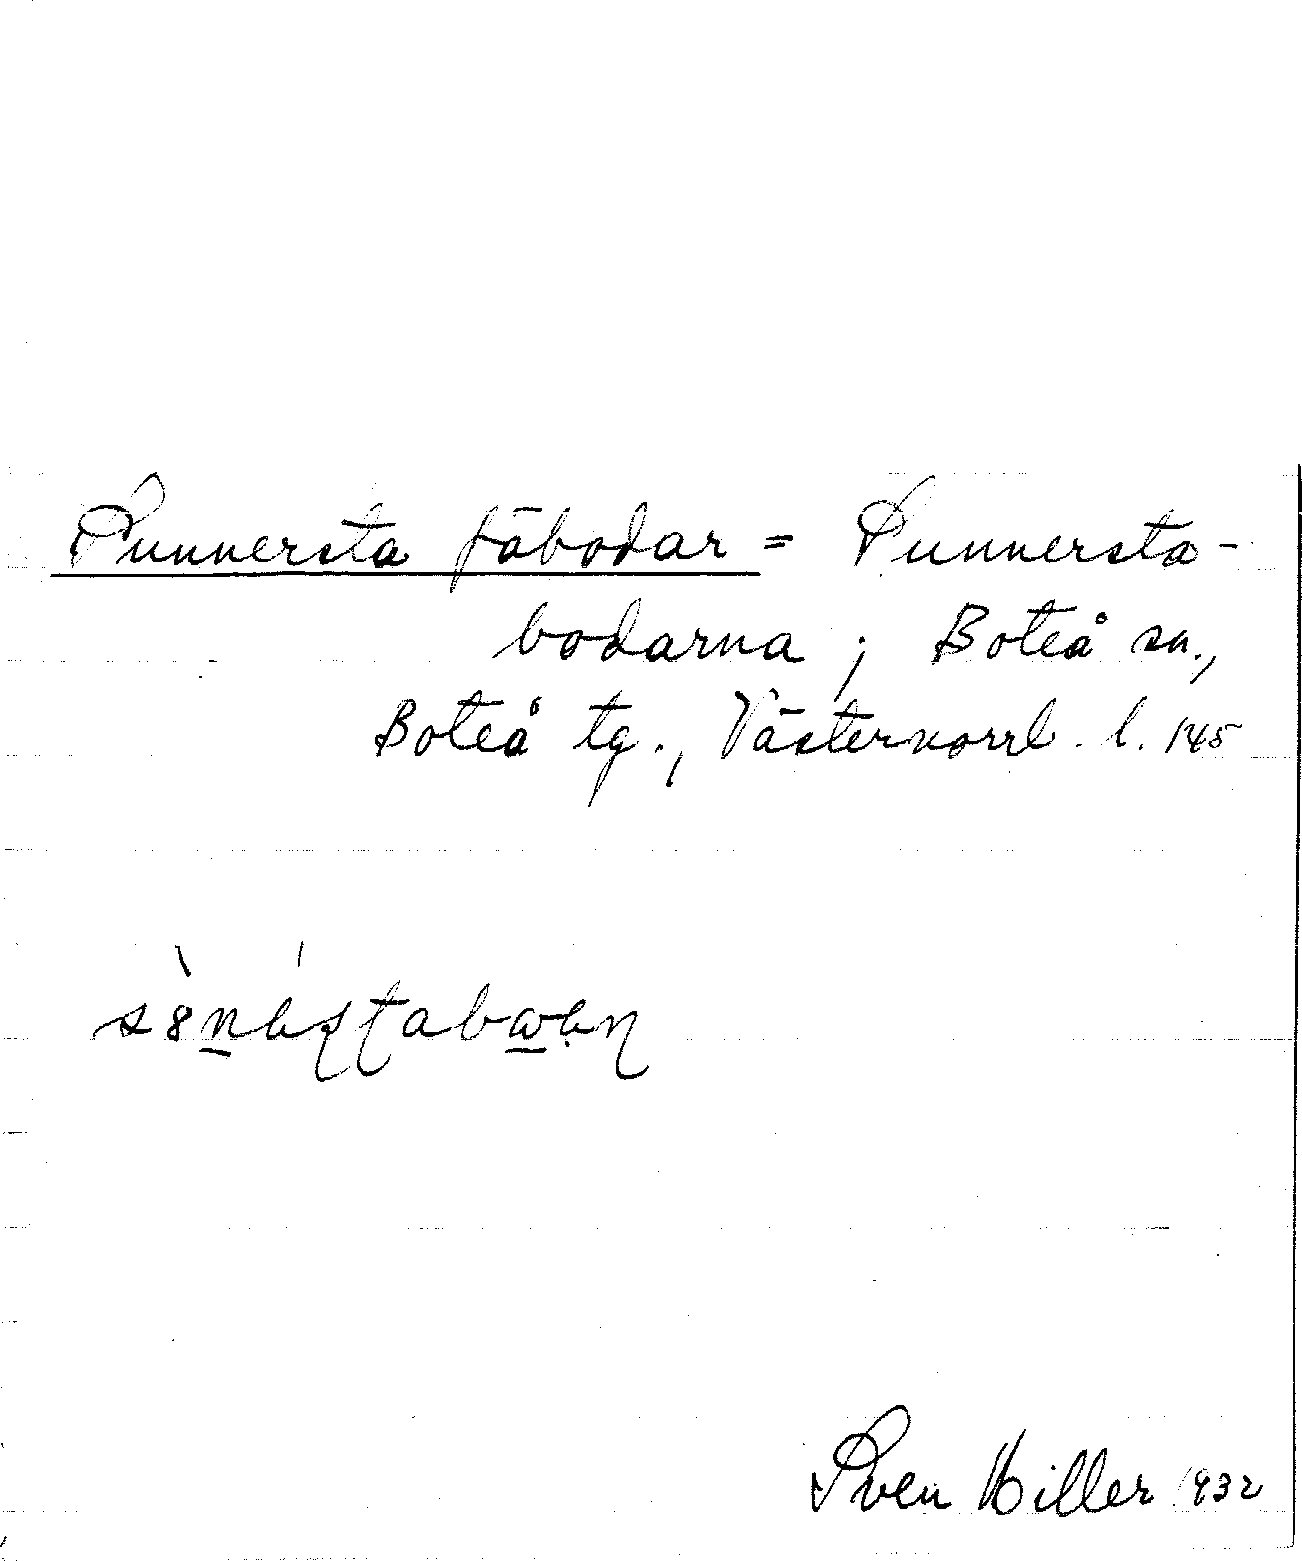 Sunnersta fäbodar = Sunnersta-
bodarna ; Boteå sn.,
Boteå tg., Västernorrl. l. 145
Sven Hiller 1932